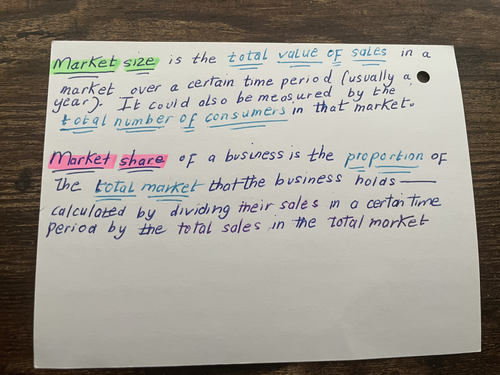 Market size is the total value of sales in a
market over a certain time period (usually a
year). It could also be measured by the
total number of consumers in that market.
Market share of a business is the proportion of
the total market that the business holds —
calculated by dividing their sales in a certain time
period by the total sales in the total market